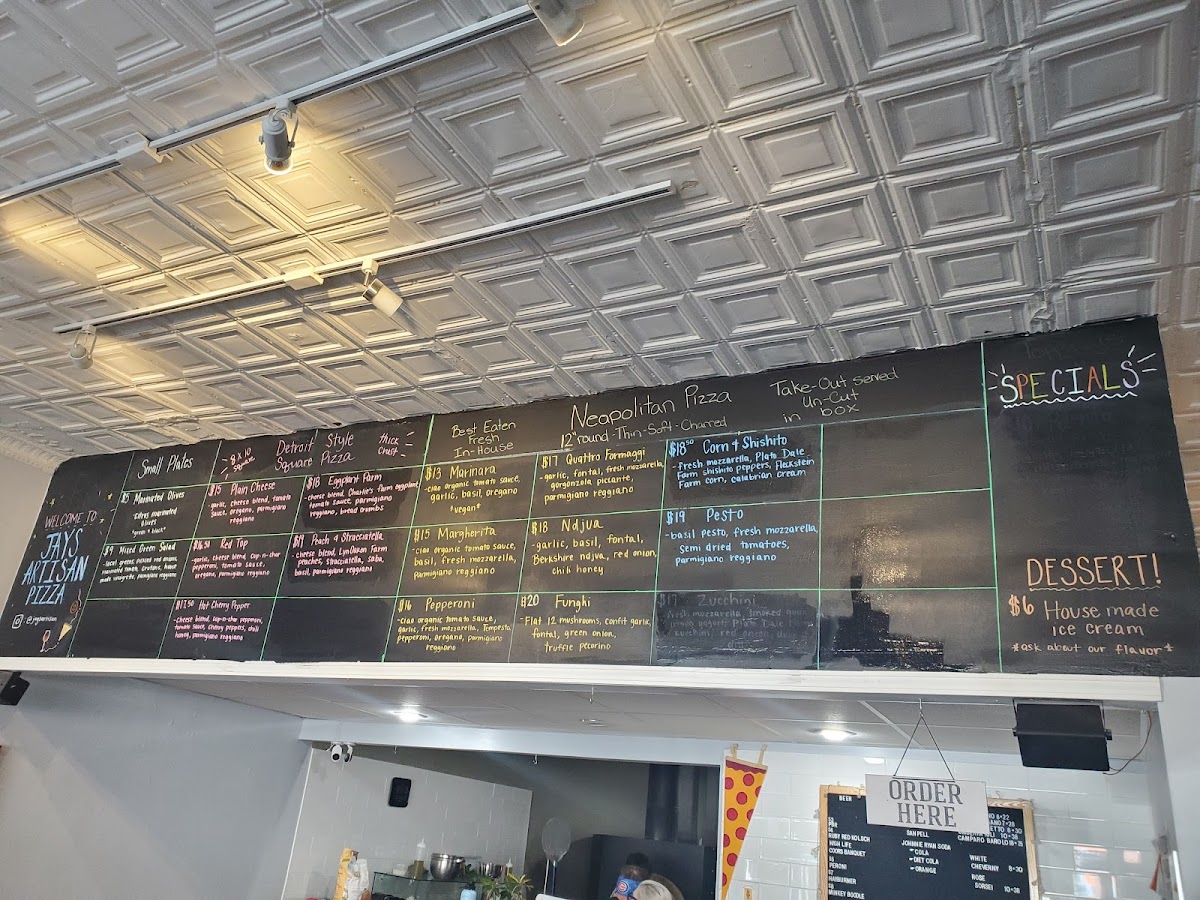 WELCOME TO
JAY'S
ARTISAN
PIZZA
Small Plates
$5 Marinated Olives
-citrus marinated
olives
*green & black*
$9 Mixed Green Salad
-local greens, pickled red onions,
marinated tomato, croutons, house
made vinaigrette, parmigiano reggiano
8 x 10
square
Detroit Style
Square Pizza
thick
crust
$15 Plain Cheese
-garlic, cheese blend, tomato
sauce, oregano, parmigiano
reggiano
$16.50 Red Top
-garlic, cheese blend, cup-n-char
pepperoni, tomato sauce,
oregano, parmigiano reggiano
$17.50 Hot Cherry Pepper
-cheese blend, cup-n-char pepperoni,
tomato sauce, cherry peppers, chili
honey, parmigiano reggiano
$18 Eggplant Parm
-cheese blend, Charlie's Farm eggplant,
tomato sauce, parmigiano
reggiano, bread crumbs
$19 Peach & Stracciatella
-cheese blend, LynOaken Farm
peaches, stracciatella, saba,
basil, parmigiano reggiano
Best Eaten
Fresh
In-House
Neapolitan Pizza
12" round-Thin-Soft-Charred
Take-Out served
Un-Cut
in box
$13 Marinara
-ciao organic tomato sauce,
garlic, basil, oregano
*vegan*
$15 Margherita
-ciao organic tomato sauce,
basil, fresh mozzarella,
parmigiano reggiano
$16 Pepperoni
-ciao organic tomato sauce,
garlic, fresh mozzarella, Tempesta
pepperoni, oregano, parmigiano
reggiano
$17 Quattro Formaggi
-garlic, fontal, fresh mozzarella,
gorgonzola piccante,
parmigiano reggiano
$18 Ndjua
-garlic, basil, fontal,
Berkshire ndjua, red onion,
chili honey
$20 Funghi
-Flat 12 mushrooms, confit garlic,
fontal, green onion,
truffle pecorino
$18.50 Corn & Shishito
-Fresh mozzarella, Plato Dale
Farm shishito peppers, Fleckstein
Farm corn, calabrian cream
$19 Pesto
-basil pesto, fresh mozzarella,
semi dried tomatoes,
parmigiano reggiano
$17 Zucchini
SPECIALS
DESSERT!
$6 House made
ice cream
*ask about our flavor*
ORDER
HERE
BEER
RUBY RED KOLSCH
HIGH LIFE
COORS BANQUET
$5
PERONI
$7
HAYBURNER
$8
MINKEY BOODLE
SAN PELL
JOHNNIE RYAN SODA
COLA
DIET COLA
ORANGE
CAMPARO BAROLO 18
WHITE
CHEVERNY 8 30
ROSE
10 38